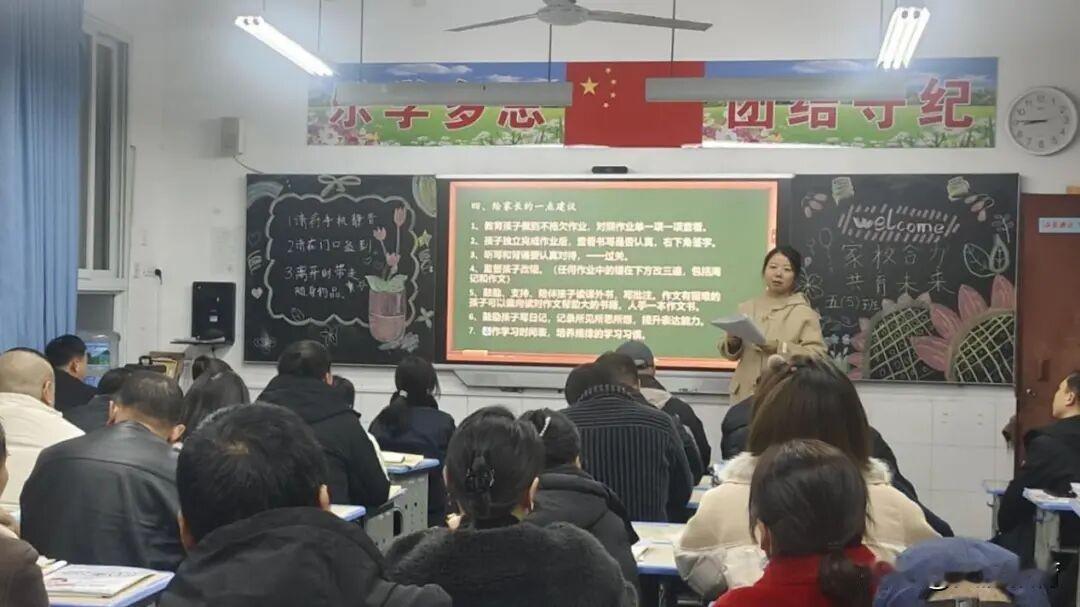 乐学多思
团结守纪
1.请将手机静音
2.请在门口签到
3.离开时带走
随身物品。
四、给家长的一点建议
1、教育孩子做到不拖欠作业,对照作业单一项一项查看。
2、孩子独立完成作业后,查看书写是否认真,右下角签字。
3、听写和背诵要认真对待,一一过关。
4、监督孩子改错。(任何作业中的错在下方改三遍,包括周
记和作文)
5、鼓励、支持、陪伴孩子读课外书,写批注。作文有困难的
孩子可以

对作文帮助大的书籍,人手一本作文书。
6、鼓励孩子写日记,记录所见所思所想,提升表达能力。
7、
作学习时间表,培养规律的学习习惯。
welcome
家校合力
共育未来
五(5)班